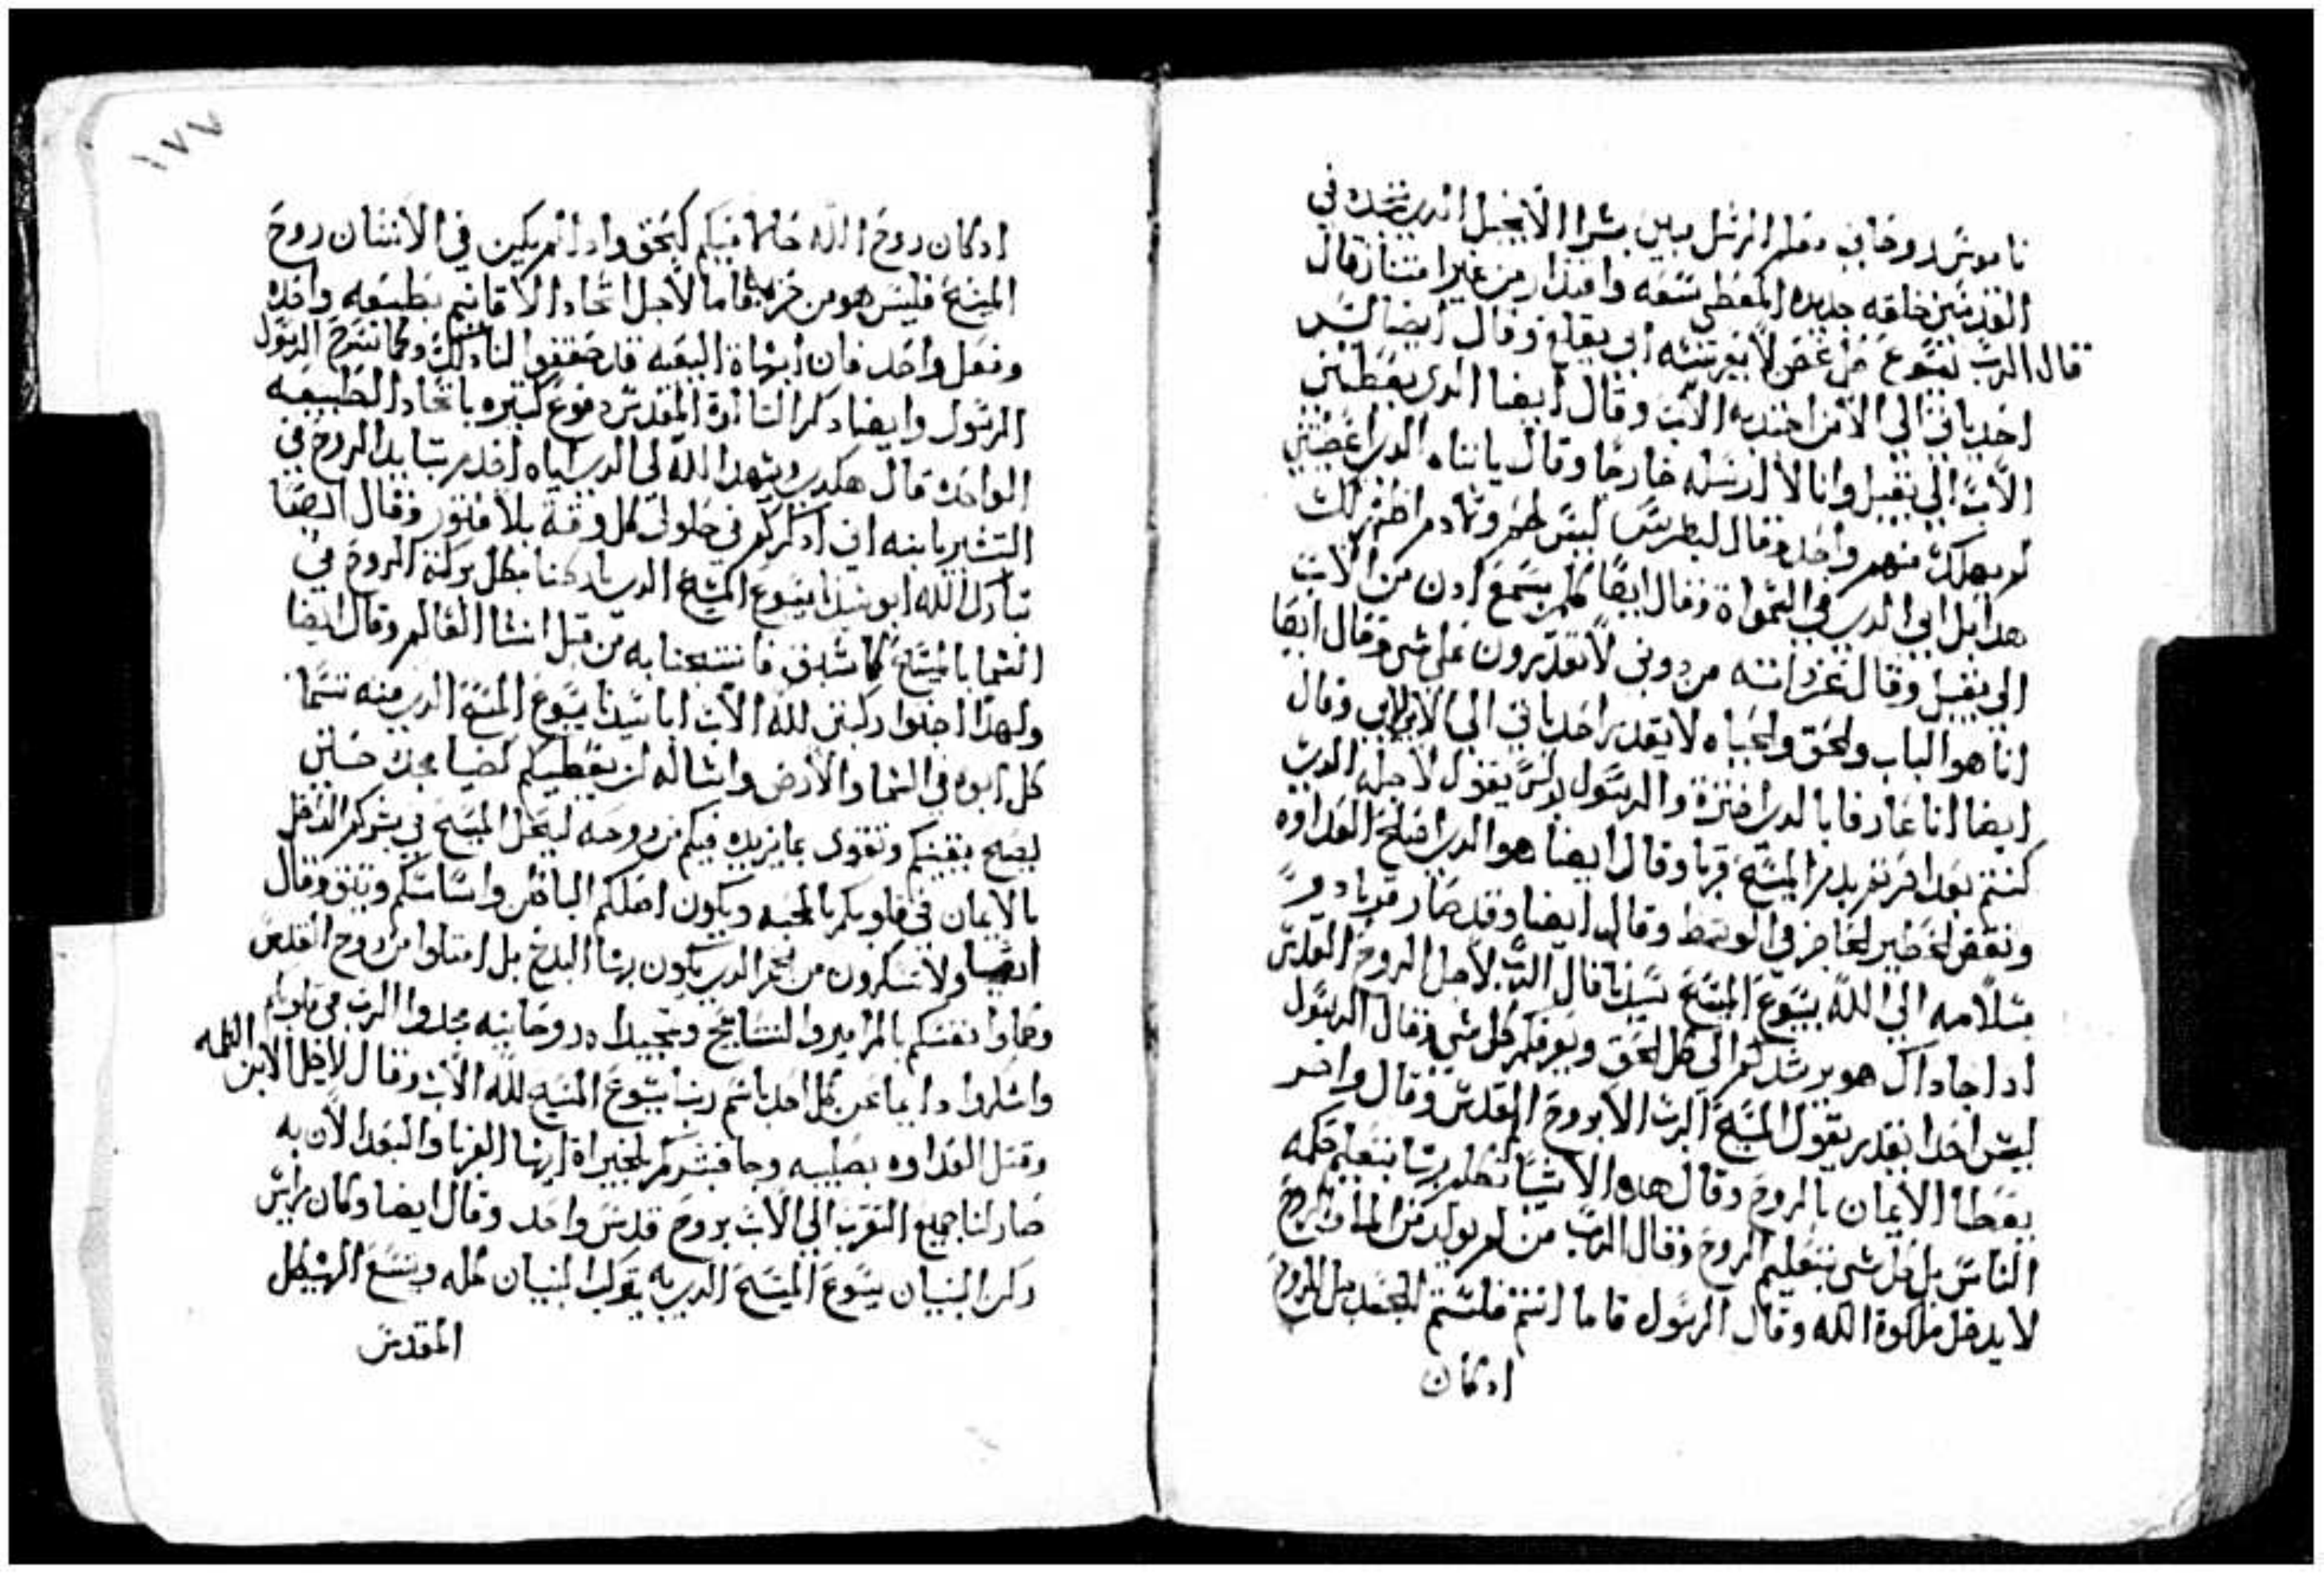 ناموس روحاني معلم الرسل وبين بشرا الانجيل الدي نتجده في
القدمين خلقه جديده المعطي سعه واقتدار من غير امتنا زقال
قال الرب يسوع كل غصن لا يغرسه ابي يقلع وقال ايضا ليس
احد ياتي الي الا من اجتدبه الاب وقال ايضا الدي يعطيني
الاب الي يقبل وانا لا ارسله خارجا وقال يا بتاه الدي اعطيتني
لم يهلك منهم واحد وقال لبطرس ليس لحم ودم اظهر لك
هدا بل ابي الدي في السمواة وقال ايضا كلمن يسمع ادن من الاب
الي يقبل وقال عز اسمه من دوني لا تقدرون علي شي وقال ايضا
انا هو الباب والحق والحياه لا يقدر احد ياتي الي الاب الا بي وقال
ايضا انا عارفا بالدي اخترة والرسول بولس يقول لاجله الدي
كنتم بعدا قرتم بدم المسيح قربا وقال ايضا هو الدي اصلح العداوه
ونقض الحظير الحاجز في الوسط وقال ايضا وقد صار قربا
بسلامه الي الله يسوع المسيح سيدنا قال الرب لاجل الروح القدس
ادا جا داك هو يرشدكم الي كل الحق ويعرفكم كل شي وقال الرسول
ليس احدا يقدر يقول المسيح الرب الا بروح القدس وقال واخر
يعطا الايمان بالروح وقال هده الاشيا نتكلم بها بتعليم حكمه
الناس بل كل شي بتعليم الروح وقال الرب من لم يولد من الما والروح
لا يدخل ملكوة الله وقال الرسول فاما انتم فلستم للجسد بل للروح
ادكان
١٧٧
ادكان روح الله حالا فيكم كبحق وادا لم يكين في الانسان روح
المسيح فليس هو من حزبه فاما لاجل اتحاد الاقانيم بطبيعه واحده
وفعل واحد فان ابهاة البيعه قد حققوا لنا دلك وكما شرح الرسول
الرسول وايضا دكر الناازة المقدس دفوع كتيره باتحاد الطبيعه
الواحده قال هكدي ويشهد الله لي الدي اياه اخدم بتايد الروح في
التبشير بابنه اني ادكركم في حلولي كل وقت بلا فتور وقال ايضا
تبارك الله ابو سيدنا يسوع المسيح الدي باركنا بكل بركة الروح في
السما بالمسيح كما سبق فانتجبنا به من قبل انشا العالم وقال ايضا
ولهدا اجتوا ركبتي لله الاب ابا سيدنا يسوع المسيح الدي منه تسما
كل ابوه في السما والارض واساله ان يعطيكم كضيا مجده حسين
يصح يقينكم وتقوي بما يزيده فيكم من روحه ليحل المسيح في بشركم الداخل
بالايمان في قلوبكم بالمحبه ويكون اصلكم الباطن واساسكم وتيق وقال
ايضا ولا تسكرون من الخمر الدي يكون بها البدخ بل امتلوا من روح القدس
وكلموا نفسكم بالمزامير والتسابيح وتمجيداة روحانيه مجدوا الرب في قلوبكم
واشكروا دايما عن كل احد باسم ربنا يسوع المسيح لله الاب وقال لاجل الابن الكلمه
وقتل العداوه بصليبه وجا فبشركم بالخيراة ايها القربا والبعدا لان به
صار لنا جميع التقرب الي الاب بروح قدس واحد وقال ايضا وكان براس
ركن البنيان يسوع المسيح الدي به يتركب البنيان كله وينسع الهيكل
المقدس